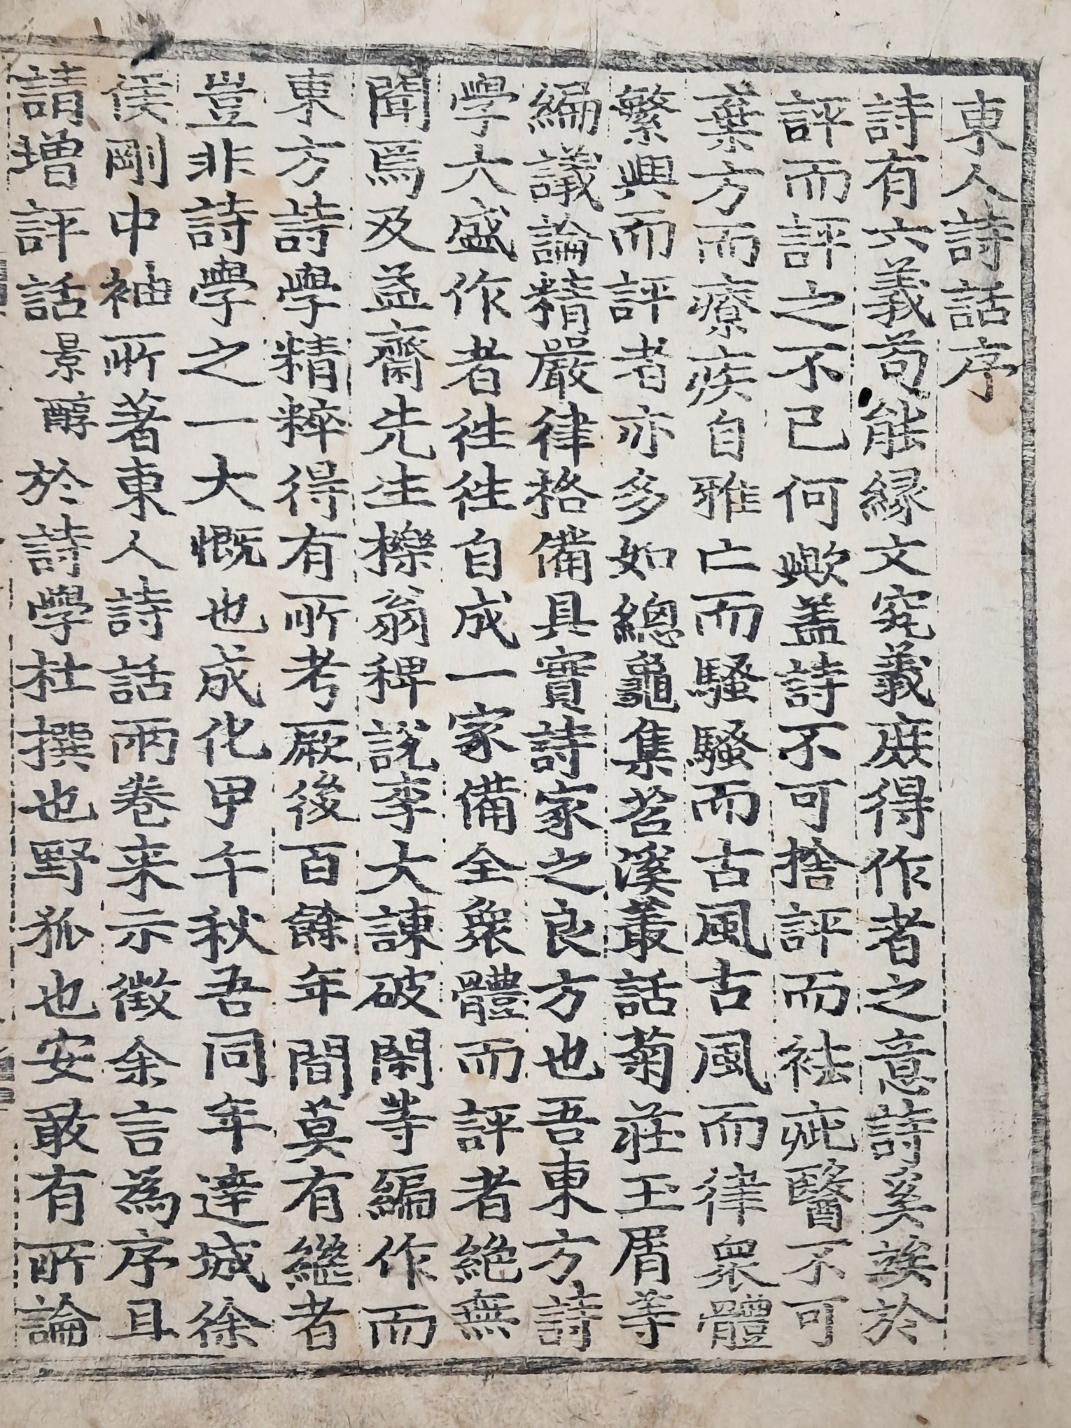 東人詩話序
詩有六義苟能緣文究義庶得作者之意詩奚誒於
評而評之不已何歟盖詩不可捨評而袪疵醫不可
棄方而療疾自雅亡而騷騷而古風古風而律衆體
繁興而評者亦多如總龜集苕溪叢話菊莊玉屑等
編議論精嚴律格備具實詩家之良方也吾東方詩
學大盛作者徃徃自成一家備全衆體而評者絶無
聞焉及益齋先生櫟翁稗說李大諫破閑等編作而
東方詩學精粹得有所考厥後百餘年間莫有繼者
豈非詩學之一大慨也成化甲午秋吾同年達城徐
侯剛中袖所著東人詩話兩卷来示徵余言為序且
請增評話景醇於詩學杜撰也野狐也安敢有所論